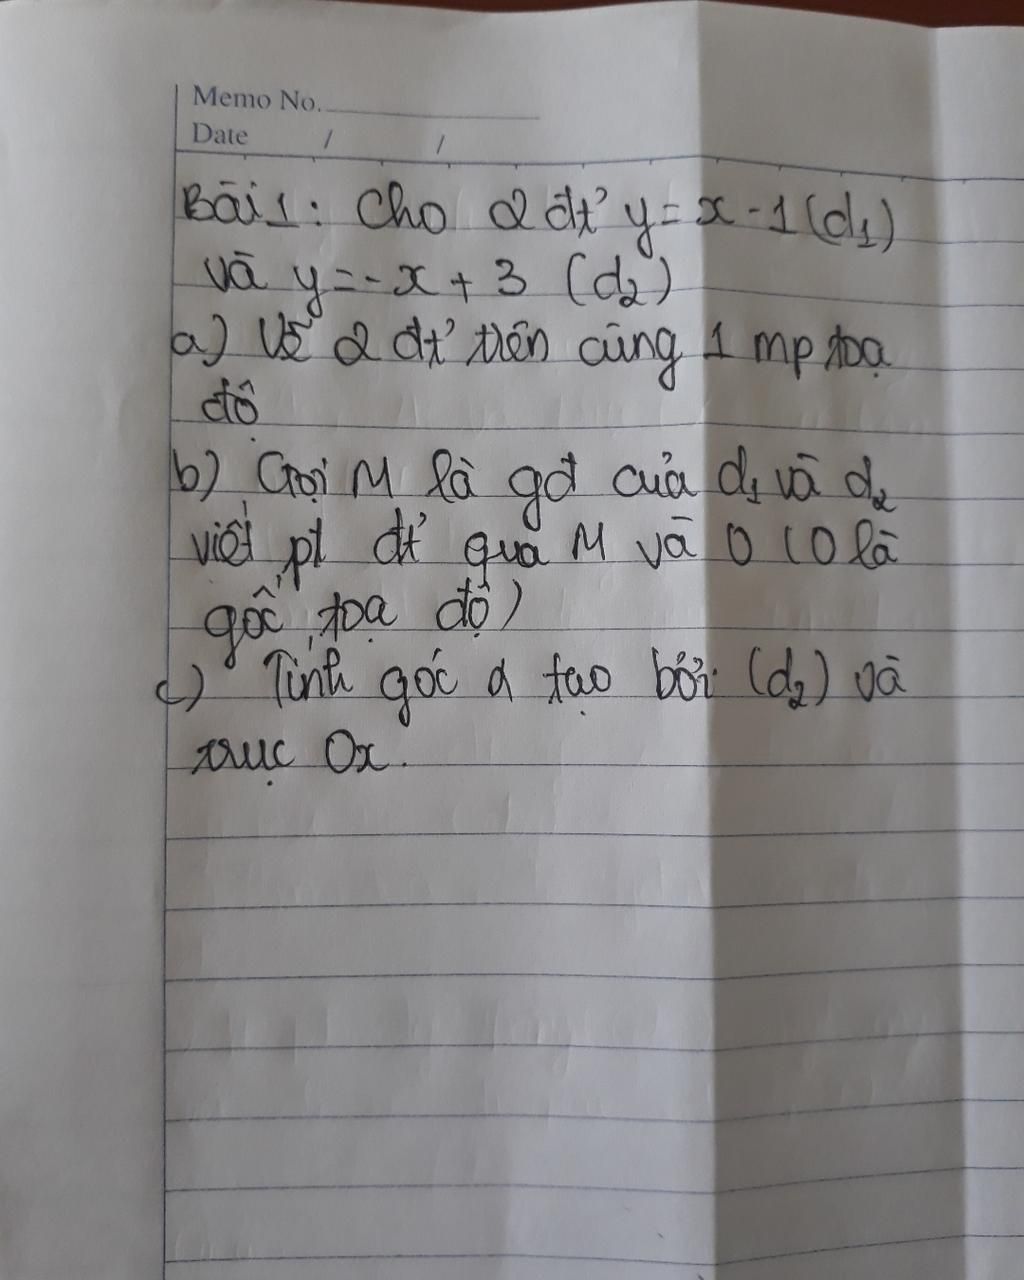 Memo No.
Date / /
Bài 1: Cho 2 đt' y = x - 1 (d1)
và y = -x + 3 (d2)
a) Vẽ 2 đt' trên cùng 1 mp toạ
độ
b) Gọi M là gđ của d1 và d2
viết pt đt' qua M và O (O là
gốc toạ độ)
c) Tính góc α tạo bởi (d2) và
trục Ox.